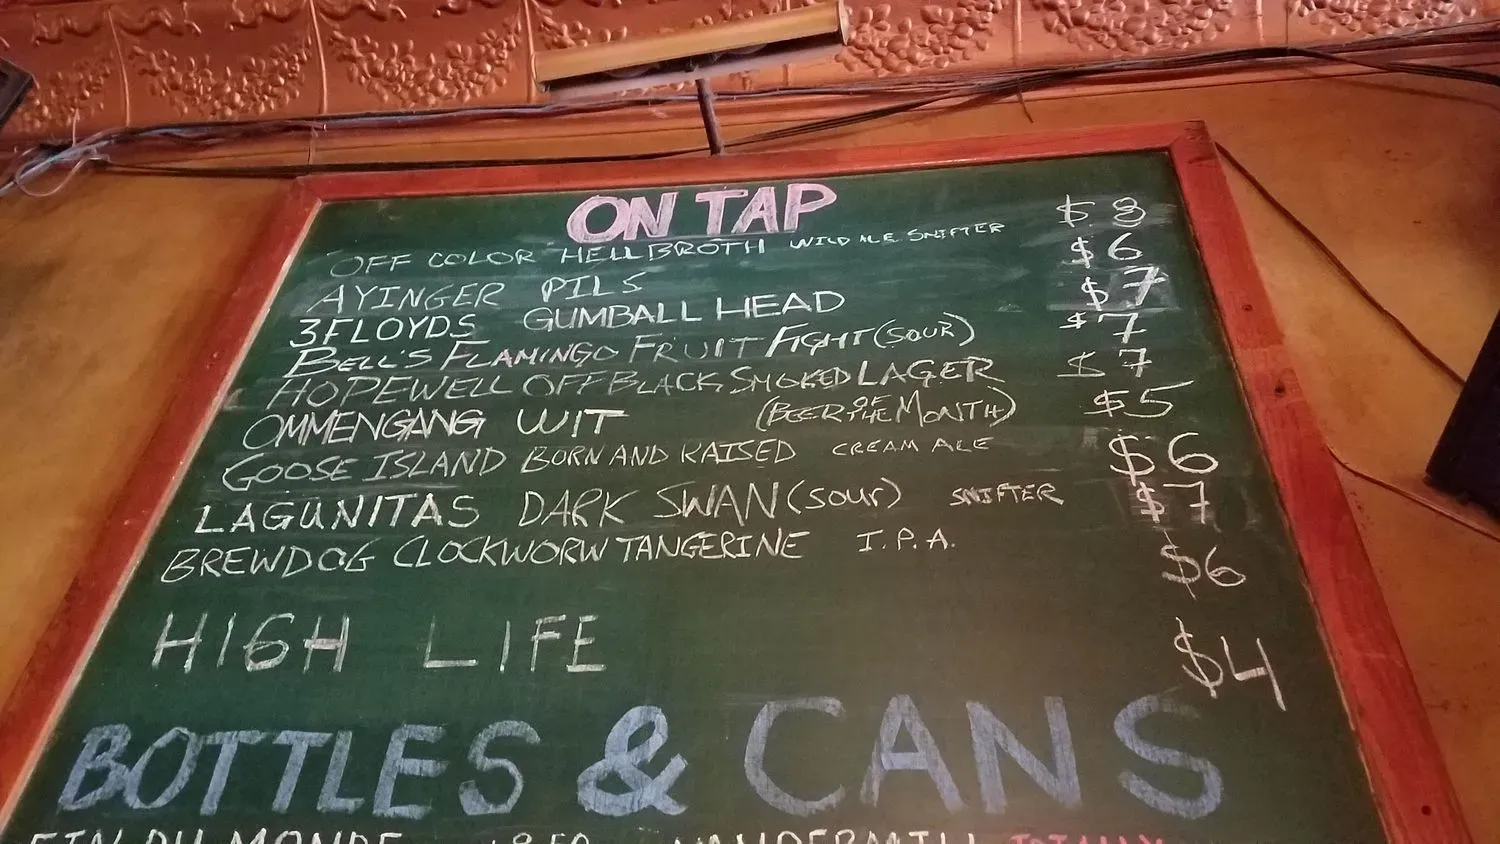 ON TAP
OFF COLOR HELLBROTH WILD ALE SNIFTER $8
AYINGER PILS $6
3FLOYDS GUMBALL HEAD $7
BELL'S FLAMINGO FRUIT FIGHT (SOUR) $7
HOPEWELL OFF BLACK SMOKED LAGER $7
OMMENGANG WIT (BEER OF THE MONTH) $5
GOOSE ISLAND BORN AND RAISED CREAM ALE $6
LAGUNITAS DARK SWAN (SOUR) SNIFTER $7
BREWDOG CLOCKWORW TANGERINE I.P.A. $6
HIGH LIFE $4
BOTTLES & CANS
FIN DU MONDE VANDERMILL TOTALLY